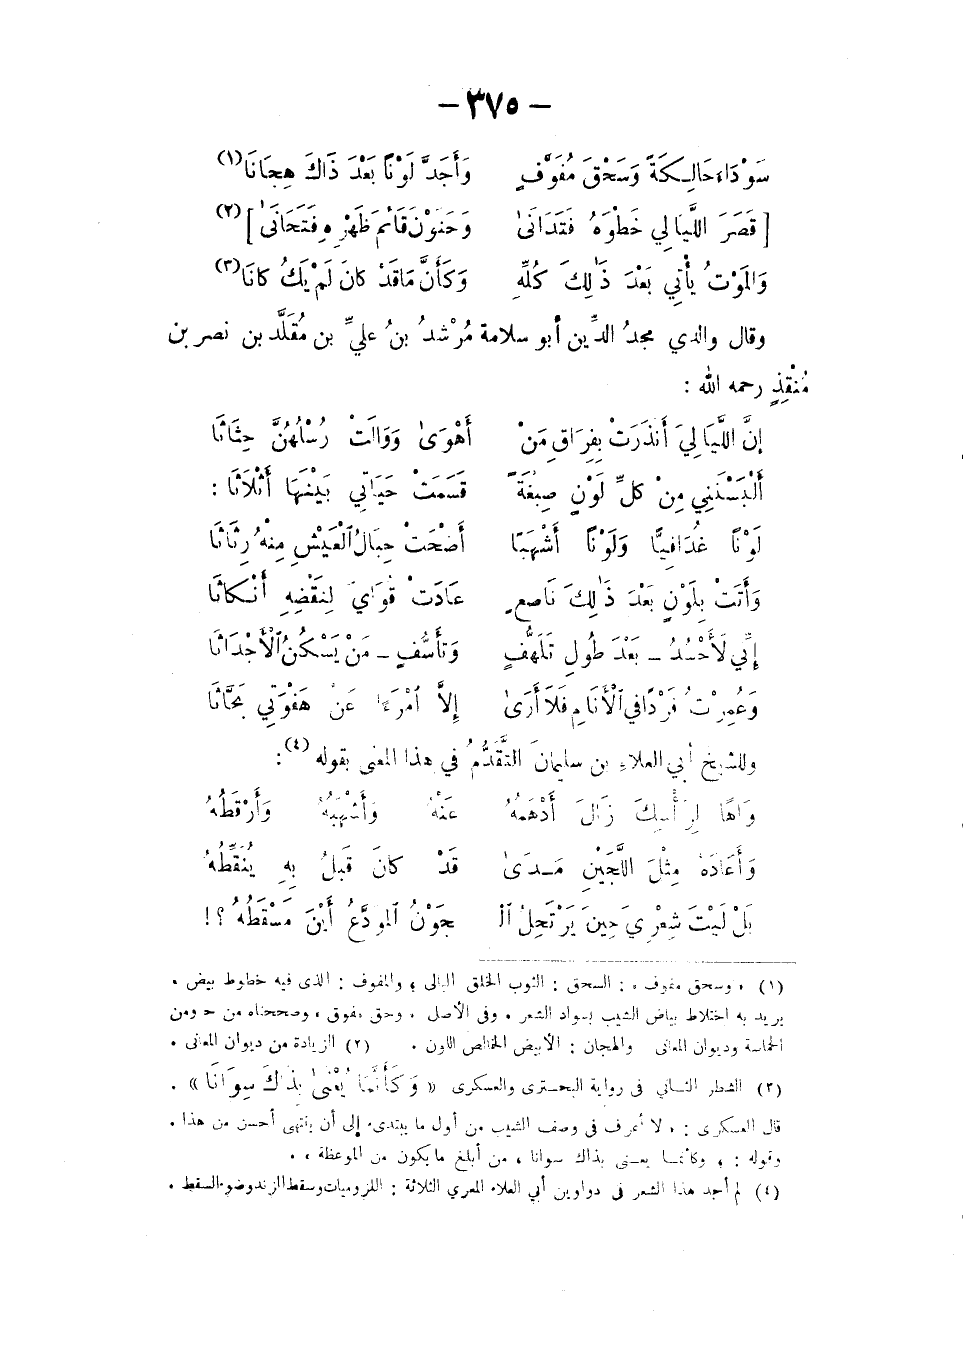 — ٣٧٥ —
سَوْدَاءَ حَالِكَةً وَسَحْقَ مُفَوَّفٍ وَأَجَدَّ لَوْنًا بَعْدَ ذَاكَ هِجَانَا (١)
[ قَصَرَ اللَّيَالِي خَطْوَهُ فَتَدَانَىٰ وَحَنَوْنَ قَائِمَ ظَهْرِهِ فَتَحَانَىٰ ] (٢)
وَالمَوْتُ يَأْتِي بَعْدَ ذَٰلِكَ كُلِّهِ وَكَأَنَّ مَاقَدْ كَانَ لَمْ يَكُ كَانَا (٣)
وقال والدي مجدُ الدِّين أبو سلامة مُرْشدُ بنُ عليِّ بن مُقَلَّد بن نصر بن
مُنْقِذٍ رحمه الله :
إنَّ اللَّيَالِيَ أَنذَرَتْ بِفِرَاقِ مَنْ أَهْوَىٰ وَوَالَتْ رُسْلَهُنَّ حِثَاثَا
أَلْبَسْنَنِي مِنْ كلِّ لَوْنٍ صِبْغَةً قَسَمَتْ حَيَاتِي بَيْنَهَا أَثْلَاثَا :
لَوْنًا غُدَافِيًّا وَلَوْنًا أَشْهَبًا أَضْحَتْ حِبَالُ الْعَيْشِ مِنْهُ رِثَاثَا
وَأَتَتْ بِلَوْنٍ بَعْدَ ذَٰلِكَ نَاصعٍ عَادَتْ قُوَايَ لِنَقْضِهِ أَنْكاثَا
إنِّي لَأَحْسُدُ ــ بَعْدَ طُولِ تَلَهُّفٍ وَتَأَسُّفٍ ــ مَنْ يَسْكُنُ الْأَجْدَاثَا
وَعُمِرْتُ فَرْدًا فِي الْأَنَامِ فَلَا أَرَىٰ إِلَّا امْرَءًا عَنْ هَفْوَتِي بَحَّاثَا
وللشيخ أبي العلاءِ بن سليمانَ التَّقَدُّمُ في هذا المعنى بقوله (٤) :
وَاهًا لِرَأْسِكَ زَالَ أَدْهَمُهُ عَنْهُ وَأَشْهَبُهُ وَأَرْقَطُهُ
وَأَعَادَهُ مِثْلَ اللُّجَيْنِ مَــدَىٰ قَدْ كَانَ قَبْلُ بِهِ يُنَقِّطُهُ
بَلْ لَيْتَ شِعْرِي حِينَ يَرْتَحِلُ الْ جَوْنُ المودَّعُ أَيْنَ مَسْقَطُهُ ؟!
(١) « وسحق مفوف » : السحق : الثوب الخلق البالى ، والمفوف : الذى فيه خطوط بيض .
يريد به اختلاط بياض الشيب بسواد الشعر . وفى الأصل « وحق مفوق » وصححناه من حـ ومن
الحماسة وديوان المعانى والهجان : الأبيض الخالص اللون . (٢) الزيادة من ديوان المعانى .
(٣) الشطر الثــانى فى رواية البحترى والعسكرى « وَكَأَنَّمَا يُعْنَىٰ بِذَاكَ سِوَانَا » .
قال العسكرى : « لا أعرف فى وصف الشيب من أول ما يبتدىء إلى أن ينتهى أحسن من هذا .
وقوله : « وكأنمــا يعــنى بذاك سوانا » من أبلغ ما يكون من الموعظة » .
(٤) لم أجد هذا الشعر فى دواوين أبي العلاء المعري الثلاثة : اللزوميات وسقط الزند وضوء السقط .